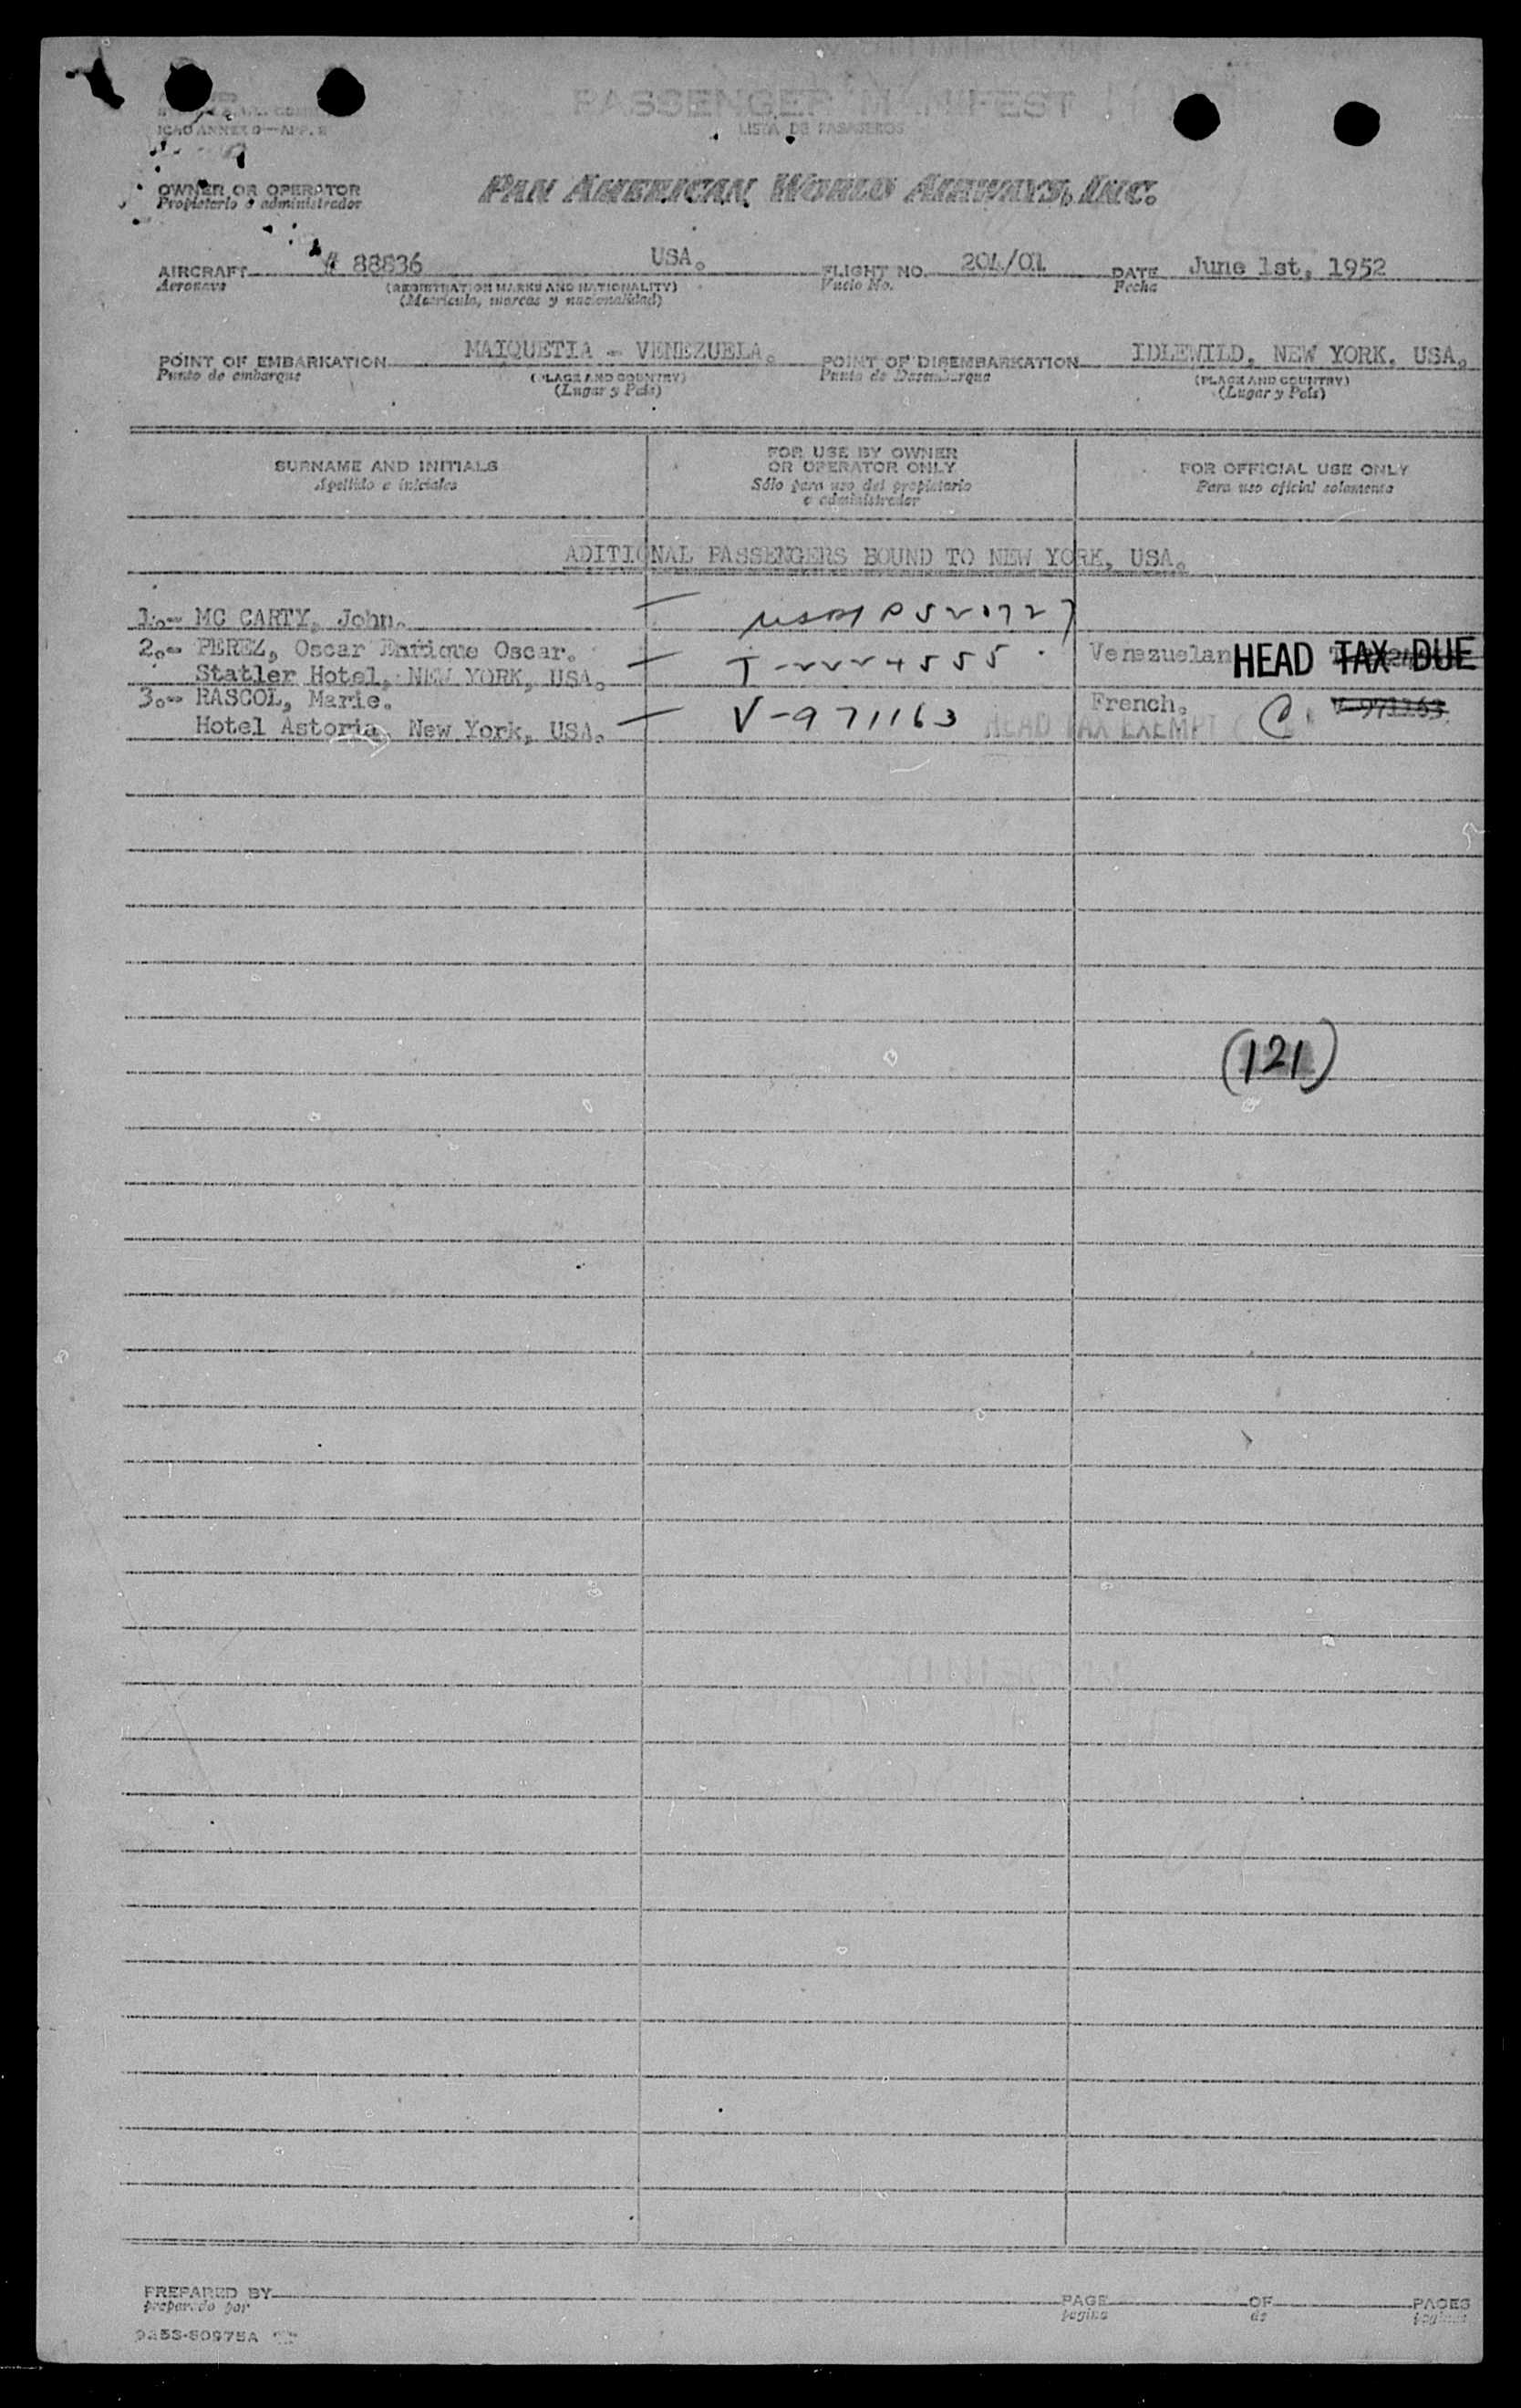 PASSENGER MANIFEST
LISTA DE PASAJEROS
ICAO ANNEX 9—APP. 2
OWNER OR OPERATOR
Propietario o administrador
PAN AMERICAN WORLD AIRWAYS, INC.
AIRCRAFT # 88836 USA. FLIGHT NO. 204/01 DATE June 1st, 1952
Aeronave (REGISTRATION MARKS AND NATIONALITY) Vuelo No. Fecha
(Matrícula, marcas y nacionalidad)
POINT OF EMBARKATION MAIQUETIA - VENEZUELA. POINT OF DISEMBARKATION IDLEWILD, NEW YORK, USA.
Punto de embarque (PLACE AND COUNTRY) Punto de Desembarque (PLACE AND COUNTRY)
(Lugar y País) (Lugar y País)
SURNAME AND INITIALS
Apellido e iniciales
FOR USE BY OWNER
OR OPERATOR ONLY
Sólo para uso del propietario
o administrador
FOR OFFICIAL USE ONLY
Para uso oficial solamente
ADITIONAL PASSENGERS BOUND TO NEW YORK, USA.
1.- MC CARTY, John.
2.- PEREZ, Oscar Enrique Oscar. Venezuelan HEAD TAX DUE
Statler Hotel, NEW YORK, USA. T-2224555
3.- RASCOL, Marie. French. V-971163
Hotel Astoria, New York, USA. V-971163 HEAD TAX EXEMPT
(121)
PREPARED BY PAGE OF PAGES
preparado por página de páginas